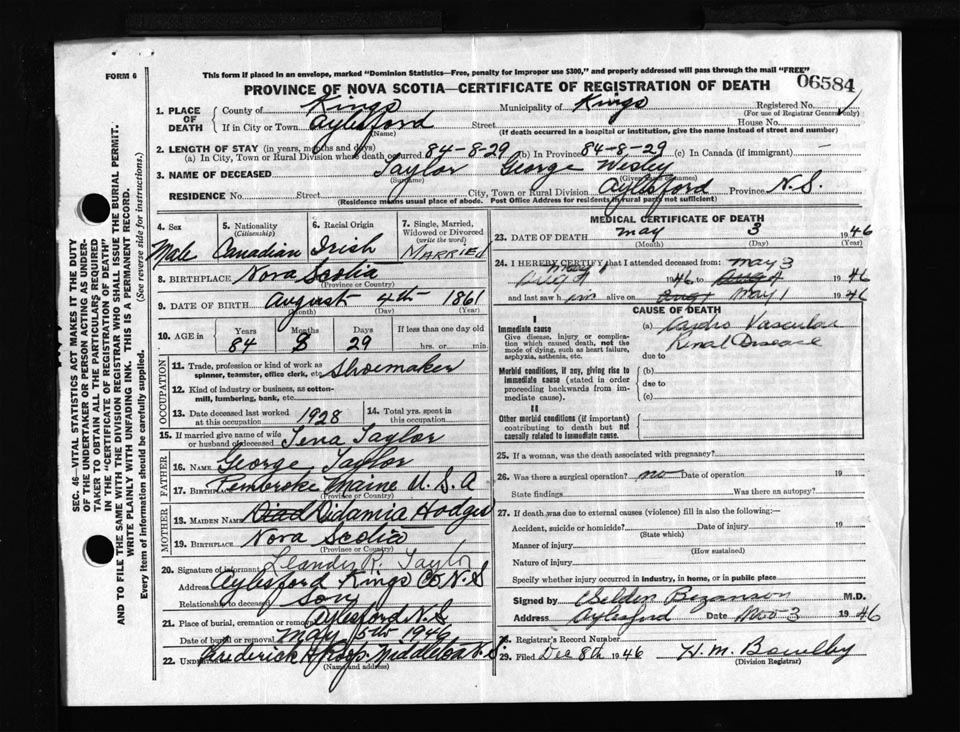 FORM 6
This form if placed in an envelope, marked "Dominion Statistics—Free, penalty for improper use $300," and properly addressed will pass through the mail "FREE"
PROVINCE OF NOVA SCOTIA—CERTIFICATE OF REGISTRATION OF DEATH
06584
1. PLACE OF DEATH
County of Kings Municipality of Kings Registered No.
(For use of Registrar General only)
If in City or Town Aylesford Street House No.
(Name) (If death occurred in a hospital or institution, give the name instead of street and number)
2. LENGTH OF STAY (in years, months and days)
(a) In City, Town or Rural Division where death occurred 84-8-29 (b) In Province 84-8-29 (c) In Canada (if immigrant) —
3. NAME OF DECEASED Taylor George Wesley
(Surname) (Given name or names)
RESIDENCE No. Street City, Town or Rural Division Aylesford Province N.S.
(Residence means usual place of abode. Post Office Address for residents in rural parts not sufficient)
4. Sex Male
5. Nationality (Citizenship) Canadian
6. Racial Origin Irish
7. Single, Married, Widowed or Divorced (write the word) MARRIED
8. BIRTHPLACE Nova Scotia
(Province or Country)
9. DATE OF BIRTH August 4th 1861
(Month) (Day) (Year)
10. AGE in Years 84 Months 8 Days 29 If less than one day old hrs. or min.
OCCUPATION
11. Trade, profession or kind of work as spinner, teamster, office clerk, etc. Shoemaker
12. Kind of industry or business, as cotton-mill, lumbering, bank, etc.
13. Date deceased last worked at this occupation 1928
14. Total yrs. spent in this occupation
15. If married give name of wife or husband of deceased Lena Taylor
FATHER
16. NAME George Taylor
17. BIRTHPLACE Pembroke Maine U.S.A
(Province or Country)
MOTHER
18. MAIDEN NAME Didamia Hodges
19. BIRTHPLACE Nova Scotia
(Province or Country)
20. Signature of informant Leander R. Taylor
Address Aylesford Kings Co N.S
Relationship to deceased Son
21. Place of burial, cremation or removal Aylesford N.S
Date of burial or removal May 5th 1946
22. UNDERTAKER Frederick A Roop Middleton N.S.
(Name and address)
MEDICAL CERTIFICATE OF DEATH
23. DATE OF DEATH May 3 1946
(Month) (Day) (Year)
24. I HEREBY CERTIFY that I attended deceased from May 3
May 1 1946 to 1946
and last saw him alive on May 1 1946
CAUSE OF DEATH
I
Immediate cause
Give disease, injury or complication which caused death, not the mode of dying, such as heart failure, asphyxia, asthenia, etc.
(a) Cardio Vascular
Renal Disease
due to
Morbid conditions, if any, giving rise to immediate cause (stated in order proceeding backwards from immediate cause).
(b)
due to
(c)
II
Other morbid conditions (if important) contributing to death but not causally related to immediate cause.
25. If a woman, was the death associated with pregnancy?
26. Was there a surgical operation? no Date of operation 19
State findings Was there an autopsy?
27. If death was due to external causes (violence) fill in also the following:—
Accident, suicide or homicide? Date of injury 19
(State which)
Manner of injury
(How sustained)
Nature of injury
Specify whether injury occurred in industry, in home, or in public place
Signed by Selden Bezanson M.D.
Address Aylesford Date 3 1946
28. Registrar's Record Number
29. Filed Dec 8th 1946 H. M. Bowlby
(Division Registrar)
SEC. 46—VITAL STATISTICS ACT MAKES IT THE DUTY
OF THE UNDERTAKER OR PERSON ACTING AS UNDER-
TAKER TO OBTAIN ALL THE PARTICULARS REQUIRED
IN THE "CERTIFICATE OF REGISTRATION OF DEATH"
AND TO FILE THE SAME WITH THE DIVISION REGISTRAR WHO SHALL ISSUE THE BURIAL PERMIT.
WRITE PLAINLY WITH UNFADING INK. THIS IS A PERMANENT RECORD.
Every item of information should be carefully supplied. (See reverse side for instructions.)